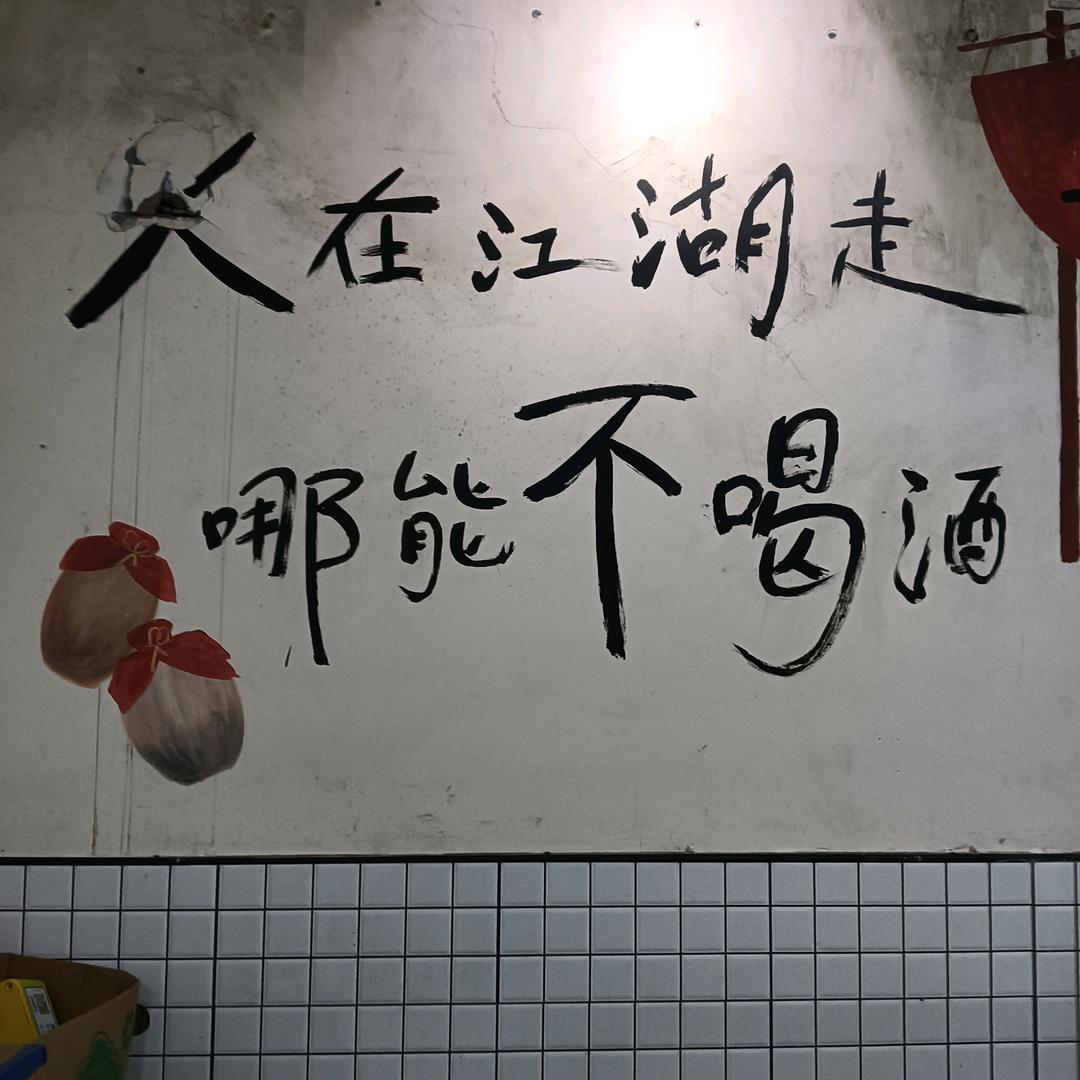 人在江湖走
哪能不喝酒